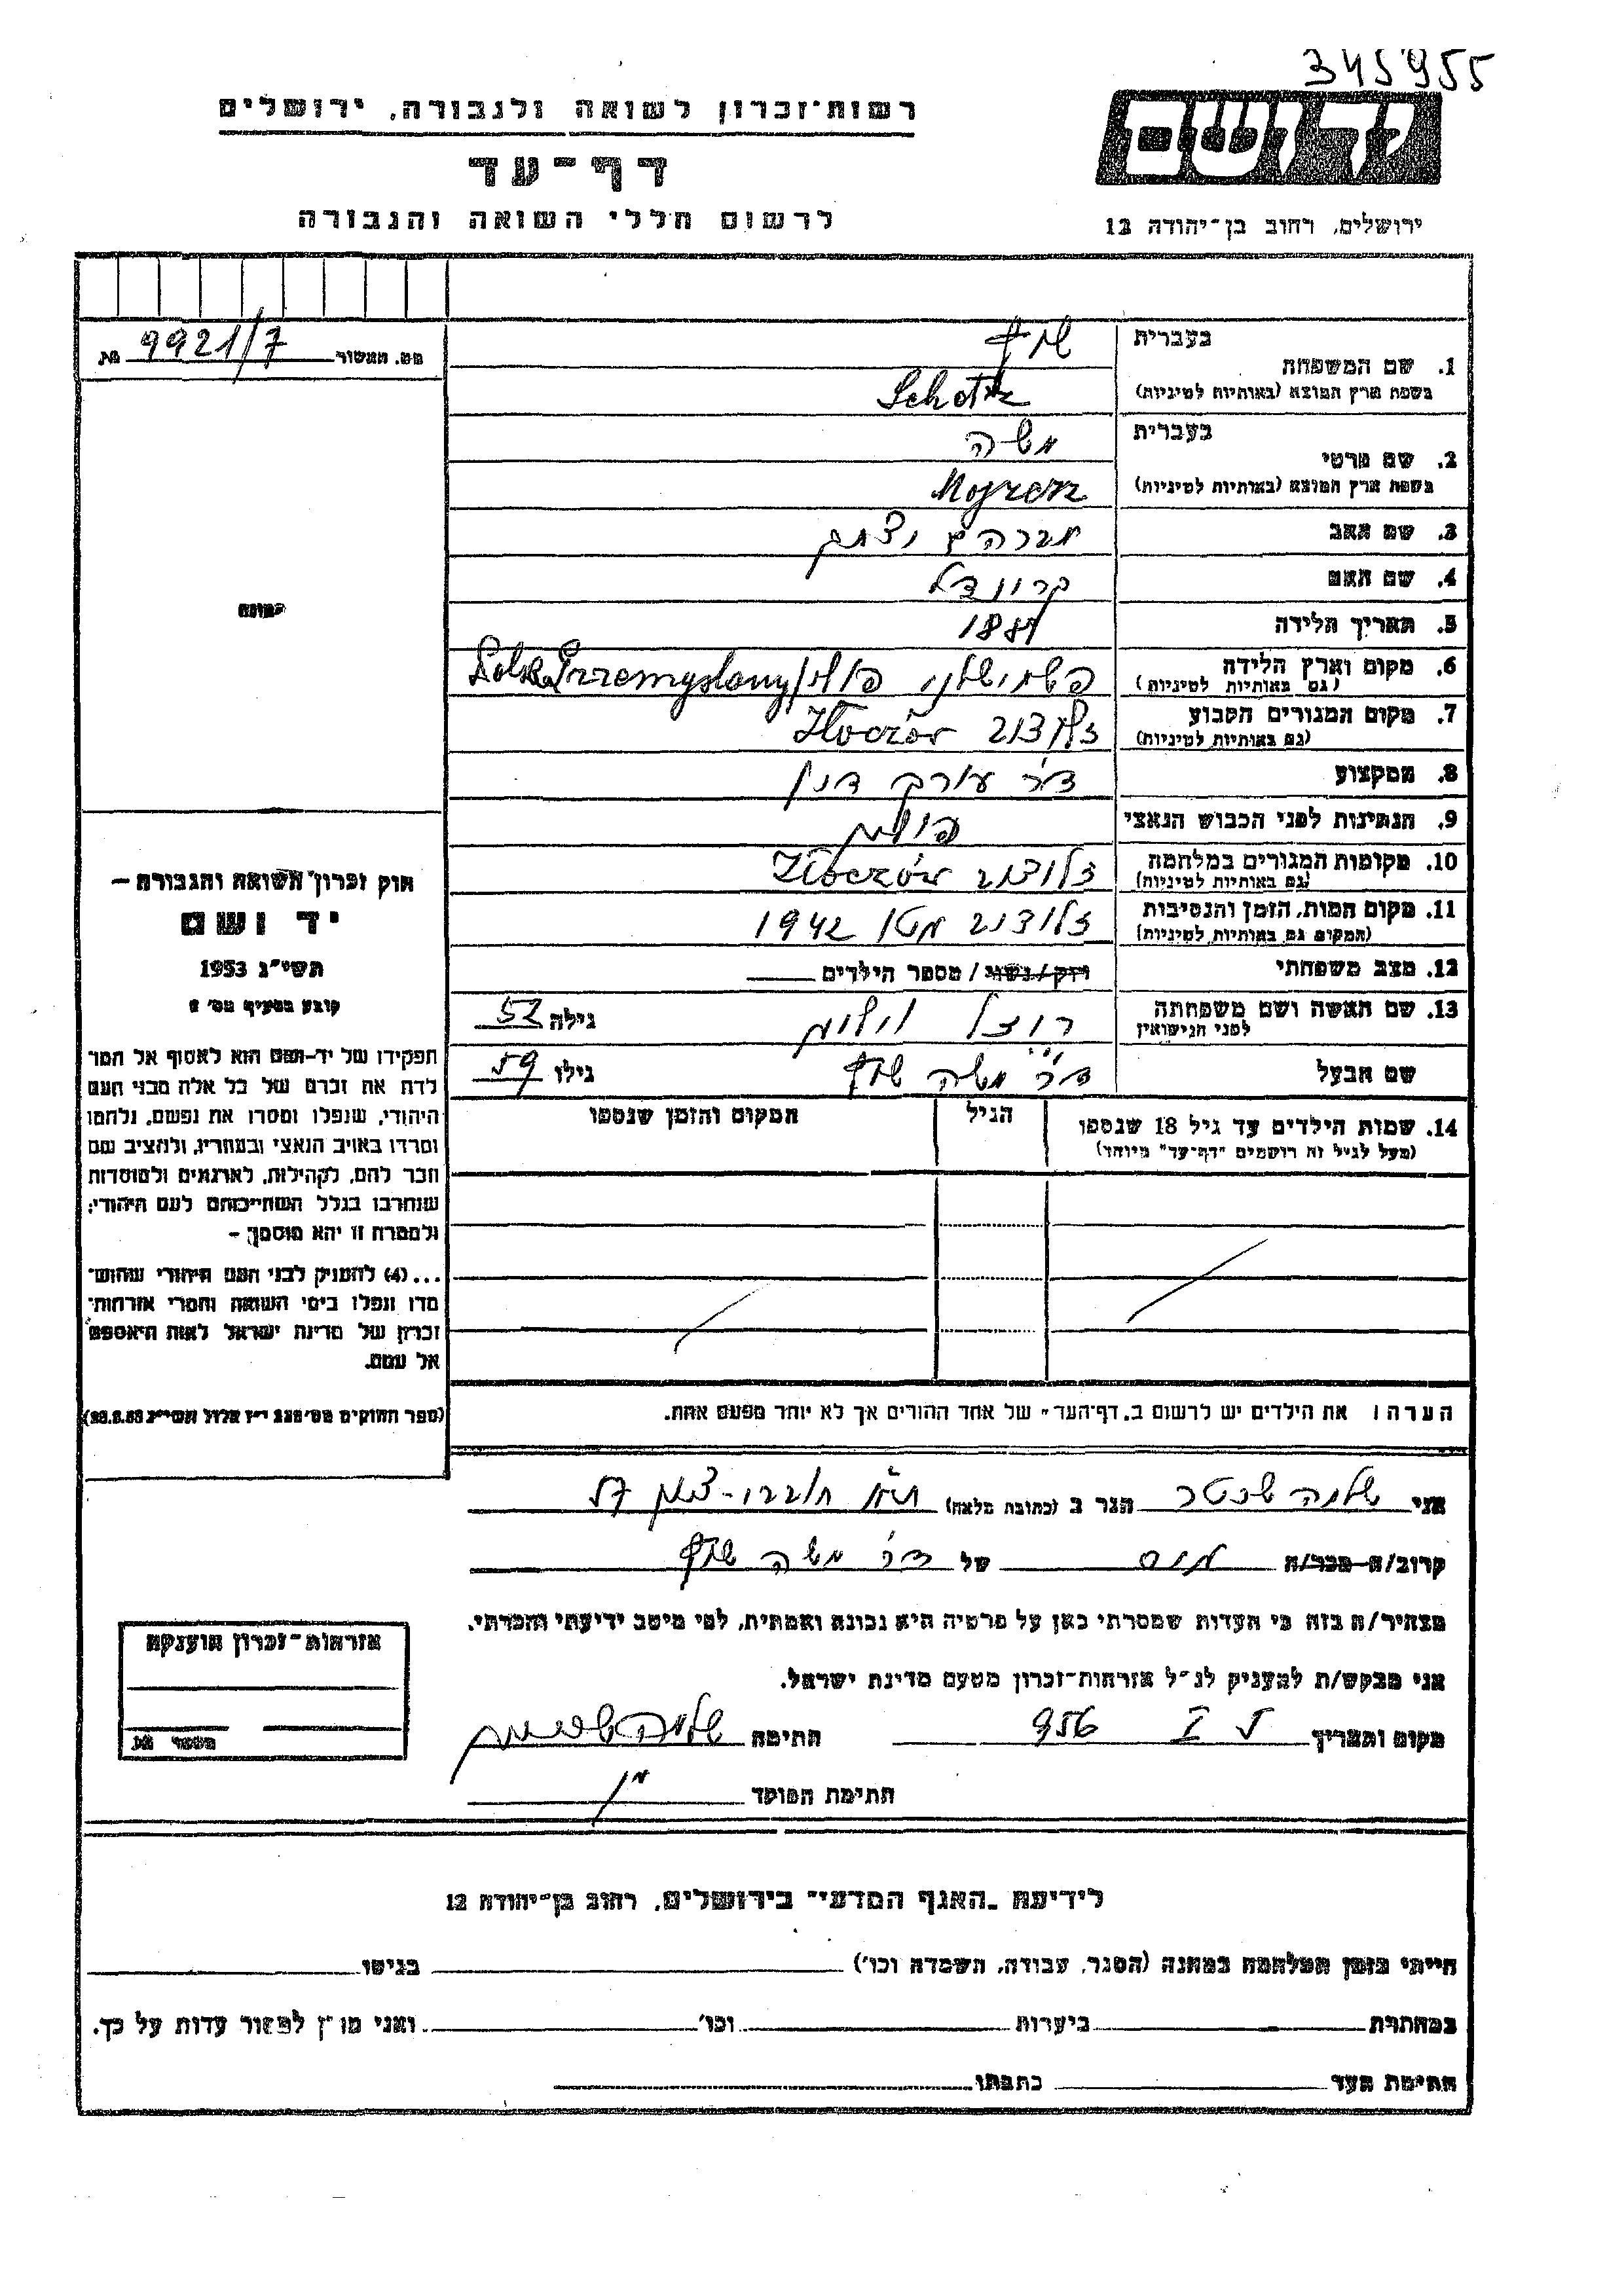 345955
רשות־זכרון לשואה ולגבורה, ירושלים
ידושם
דף־עד
לרשום חללי השואה והגבורה
ירושלים, רחוב בן־יהודה 12
מס. מאשור 9921/7 מת
בעברית
1. שם המשפחה
בשפת ארץ המוצא (באותיות לטיניות)
בעברית משה
2. שם פרטי
בשפת ארץ המוצא (באותיות לטיניות)
3. שם האב אברהם יצחק
4. שם האם
5. תאריך הלידה
6. מקום וארץ הלידה
(גם באותיות לטיניות) Przemyslany
7. מקום המגורים הקבוע זלוצוב Złoczów
(גם באותיות לטיניות)
8. המקצוע ד"ר עורך דין
9. הנתינות לפני הכבוש הנאצי פולנית
10. מקומות המגורים במלחמה זלוצוב Złoczów
(גם באותיות לטיניות)
11. מקום המות, הזמן והנסיבות זלוצוב 1942
(המקום גם באותיות לטיניות)
12. מצב משפחתי רוק/נשוי / מספר הילדים
13. שם האשה ושם משפחתה גילה 52
לפני הנישואין
שם הבעל ד"ר משה גילו 59
14. שמות הילדים עד גיל 18 שנספו הגיל המקום והזמן שנספו
(מעל לגיל זה רושמים "דף־עד" מיוחד)
הערה: את הילדים יש לרשום ב"דף־העד" של אחד ההורים אך לא יותר מפעם אחת.
תמונה
חוק זכרון השואה והגבורה –
יד ושם
תשי"ג 1953
קובע בסעיף מס' 2
תפקידו של יד־ושם הוא לאסוף אל המו־
לדת את זכרם של כל אלה מבני העם
היהודי, שנפלו ומסרו את נפשם, נלחמו
ומרדו באויב הנאצי ובעוזריו, ולהציב שם
וזכר להם, לקהילות, לארגונים ולמוסדות
שנחרבו בגלל השתייכותם לעם היהודי;
ולמטרה זו יהא מוסמך –
...(4) להעניק לבני העם היהודי שהוש־
מדו ונפלו בימי השואה והמרי אזרחות־
זכרון של מדינת ישראל לאות היאספם
אל עמם.
(ספר החוקים מס' 132 י"ז אלול תשי"ג 28.8.53)
אני הגר ב (כתובת מלאה)
קרוב/ה מכר/ה של ד"ר משה
מצהיר/ה בזה כי העדות שמסרתי כאן על פרטיה היא נכונה ואמתית, לפי מיטב ידיעתי והכרתי.
אני מבקש/ת להעניק לנ"ל אזרחות־זכרון מטעם מדינת ישראל.
מקום ותאריך I 956 חתימה
חתימת הפוקד
אזרחות־זכרון הוענקה
מספר מת
לידיעת ־האגף המדעי־ בירושלים, רחוב בן־יהודה 12
הייתי בזמן המלחמה במחנה (הסגר, עבודה, השמדה וכו') בגיטו
במחתרת ביערות וכו' ואני מוכן למסור עדות על כך.
חתימת העד כתבתו